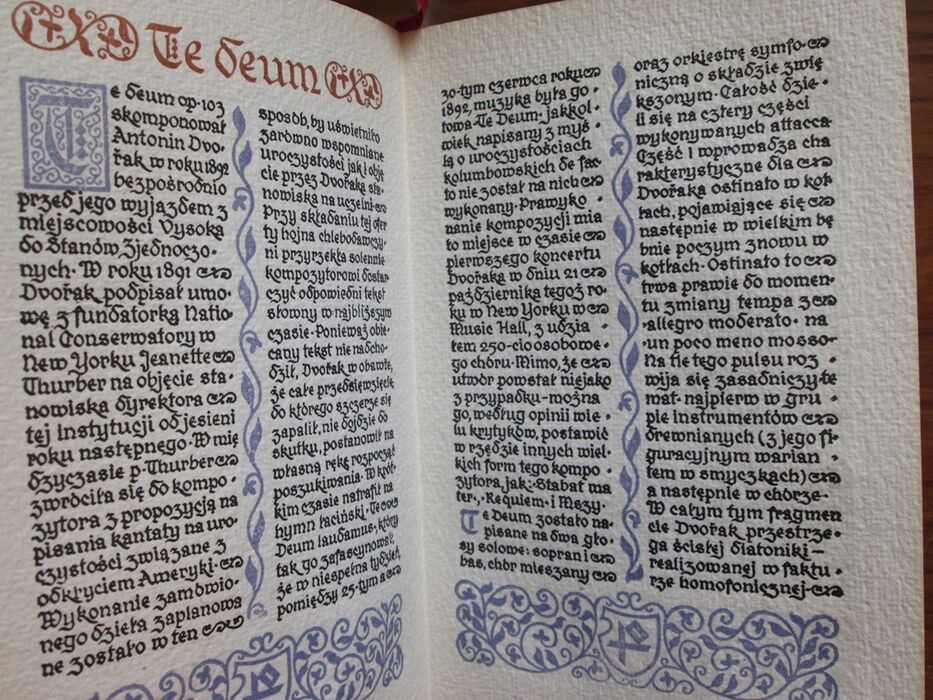 Te Deum
Te Deum op·103
skomponował
Antonin Dvo·
řak w roku 1892
bezpośrednio
przed jego wyjazdem z
miejscowości Vysoka
do Stanów Zjednoczo·
nych· W roku 1891
Dvořak podpisał umo·
wę z fundatorką Natio·
nal Conservatory w
New Yorku Jeanette
Thurber na objęcie sta·
nowiska dyrektora
tej instytucji od jesieni
roku następnego· W mię
dzyczasie p·Thurber
zwróciła się do kompo·
zytora z propozycją na
pisania kantaty na uro·
czystości związane z
odkryciem Ameryki·
Wykonanie zamówio·
nego dzieła zaplanowa
ne zostało w ten
sposób, by uświetniło
zarówno wspomniane
uroczystości jak i obję
cie przez Dvořaka sta·
nowiska na uczelni
Przy składaniu tej ofer
ty hojna chlebodawczy·
ni przyrzekła solennie
kompozytorowi dostar·
czyć odpowiedni tekst
słowny w najbliższym
czasie· Ponieważ obie·
cany tekst nie nadcho·
dził, Dvořak w obawie,
że całe przedsięwzięcie,
do którego szczerze się
zapalił, nie dojdzie do
skutku, postanowił na
własną rękę rozpocząć
poszukiwania· W krót·
kim czasie natrafił na
hymn łaciński „Te
Deum laudamus„ który
tak go zafascynował,
że w niespełna tydzień,
pomiędzy 25·tym a
30·tym czerwca roku
1892, muzyka była go·
towa· Te Deum· jakkol·
wiek napisany z myś·
lą o uroczystościach
kolumbowskich de fac·
to nie został na nich
wykonany· Prawyko·
nanie kompozycji mia
to miejsce w czasie
pierwszego koncertu
Dvořaka w dniu 21
października tegoż ro·
ku w New Yorku w
Music Hall, z udzia·
tem 250·cio osobowe·
go chóru· Mimo, że
utwór powstał niejako
z przypadku – można
go, według opinii wie·
lu krytyków, postawić
w rzędzie innych wiel·
kich form tego kompo·
zytora, jak: Stabat ma
ter·, ·Requiem· i Mszy·
Te Deum zostało na·
pisane na dwa gło·
sy solowe: sopran i
bas, chór mieszany
oraz orkiestrę symfo·
niczną o składzie zwię
kszonym· Całość dzie·
li się na cztery części
wykonywanych attacca·
Część I wprowadza cha
rakterystyczne dla
Dvořaka ostinato w kot·
łach, pojawiające się
następnie w wielkim bę
bnie poczym znowu w
kotłach· Ostinato to
trwa prawie do momen·
tu zmiany tempa z
·allegro moderato· na
·un poco meno mosso·
Na tle tego pulsu roz·
wija się zasadniczy te
mat· najpierw w gru·
pie instrumentów
drewnianych (z jego fi·
guracyjnym warian·
tem w smyczkach)
a następnie w chórze·
W całym tym fragmen
cie Dvořak przestrze·
ga ścisłej diatoniki –
realizowanej w faktu·
rze homofonicznej·